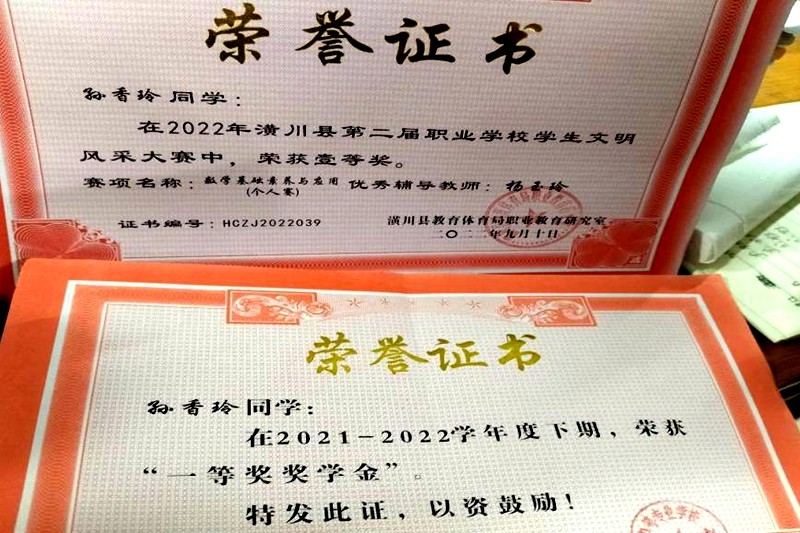 荣誉证书
孙香玲同学：
在2022年潢川县第二届职业学校学生文明
风采大赛中，荣获壹等奖。
赛项名称：数学基础素养与应用 优秀辅导教师：杨玉玲
(个人赛)
证书编号：HCZJ2022039 潢川县教育体育局职业教育研究室
二〇二二年九月十日
荣誉证书
孙香玲同学：
在2021-2022学年度下期，荣获
“一等奖奖学金”。
特发此证，以资鼓励！